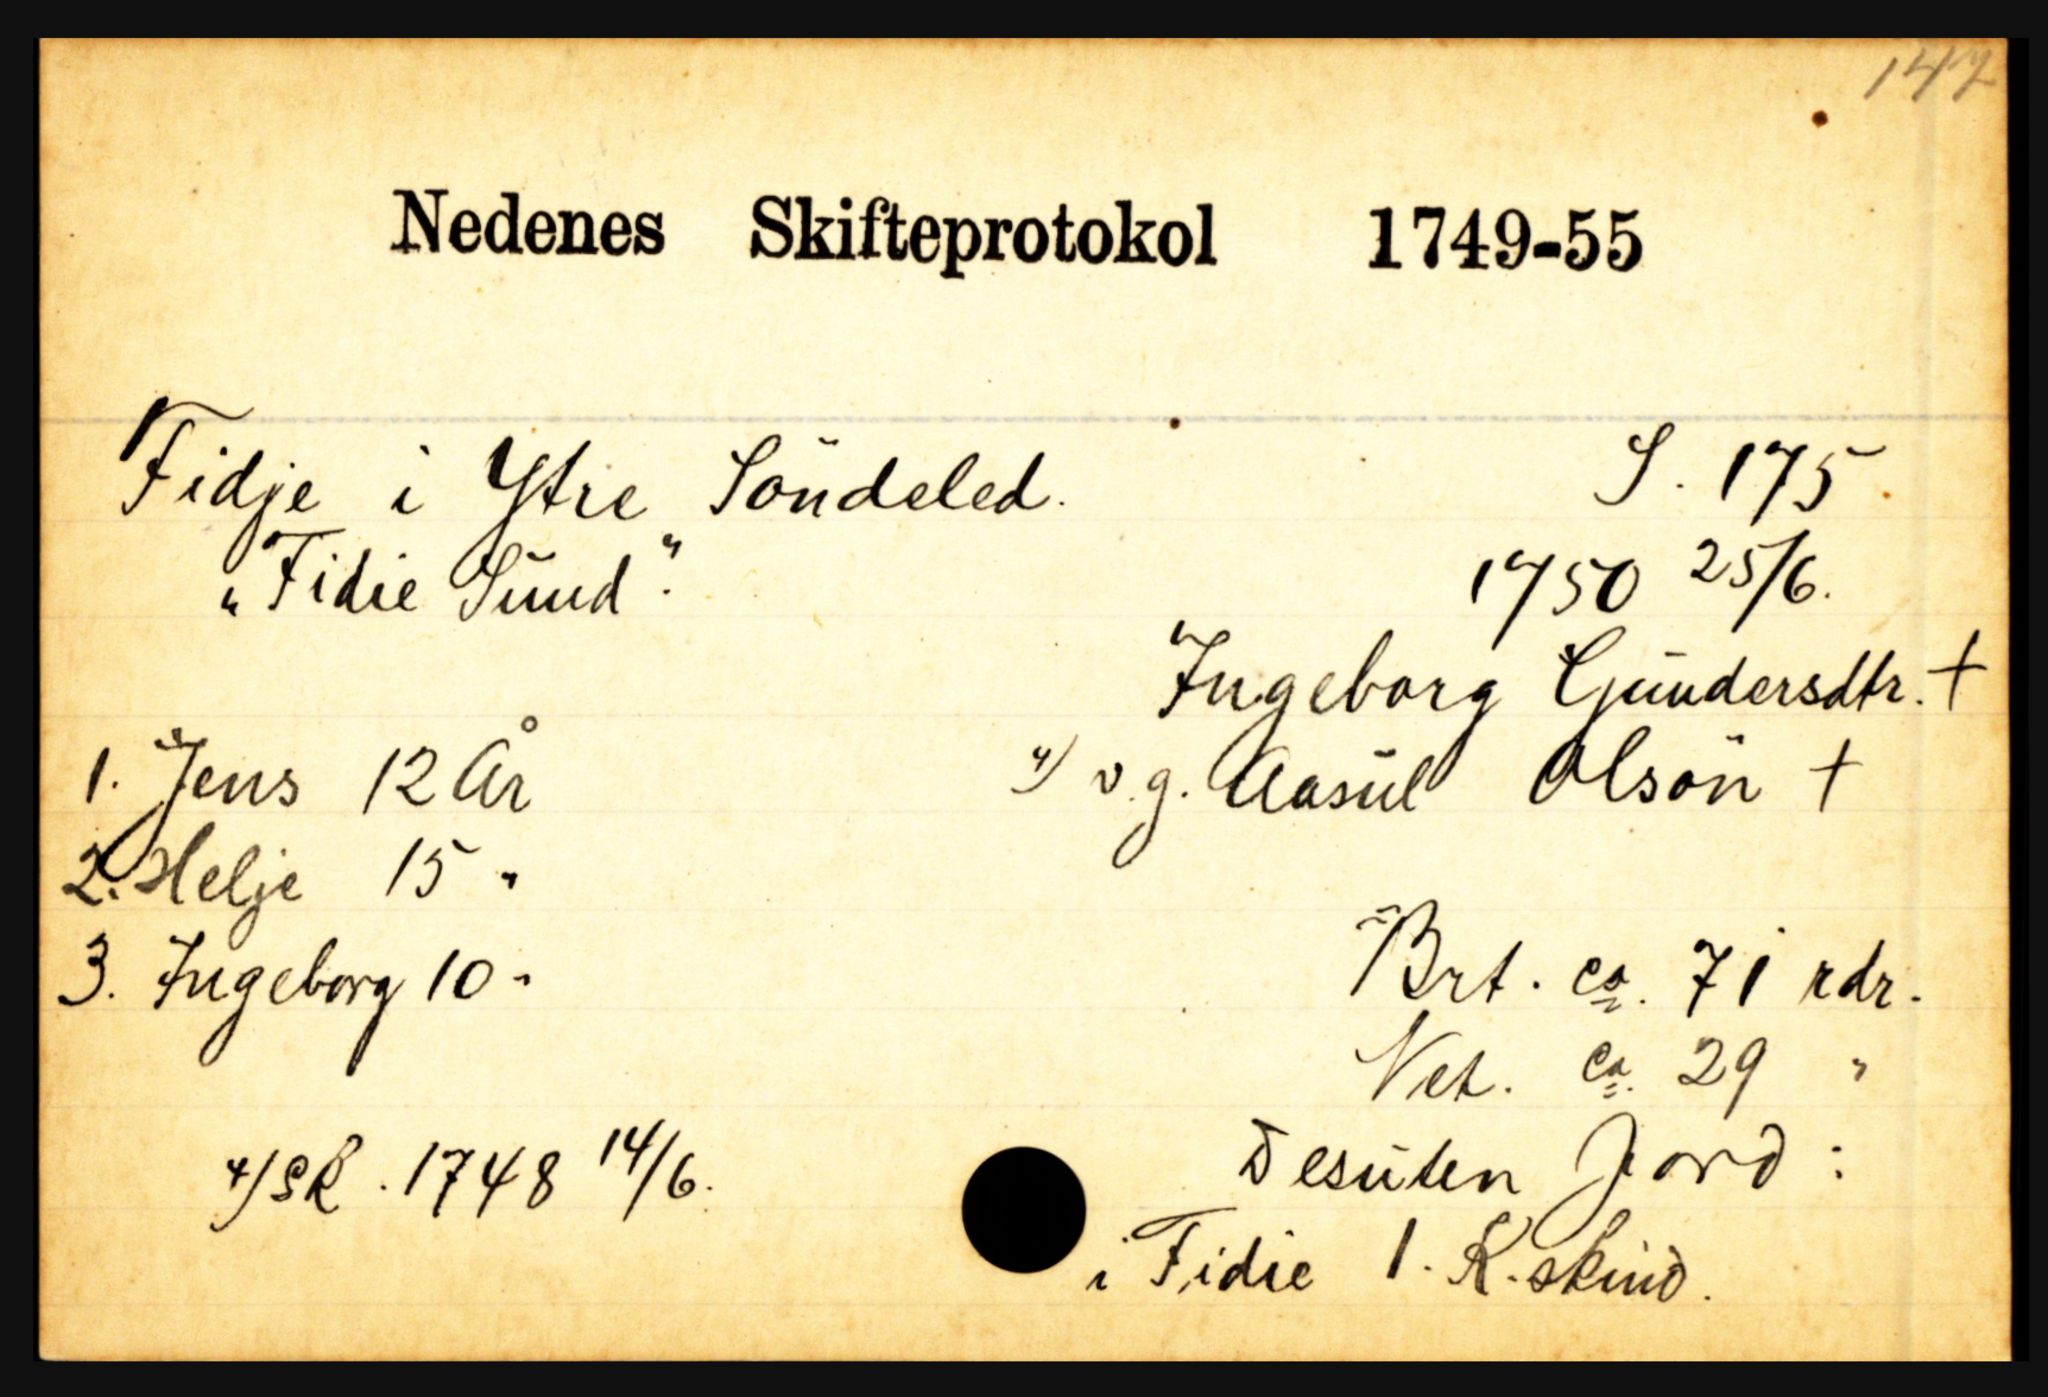 147
Nedenes Skifteprotokol 1749-55
Fidje i Ytre Söndeled. S. 175.
"Fidie Sund". 1750 25/6.
Ingeborg Gundersdtr. +
1. Jens 12 År x) v.g. Aasul Olsön +
2. Helje 15 "
3. Ingeborg 10 " Brt. ca. 71 rdr.
Net. ca. 29 "
x) Sk. 1748 14/6. Desuten Jord:
i Fidie 1. K.skind.